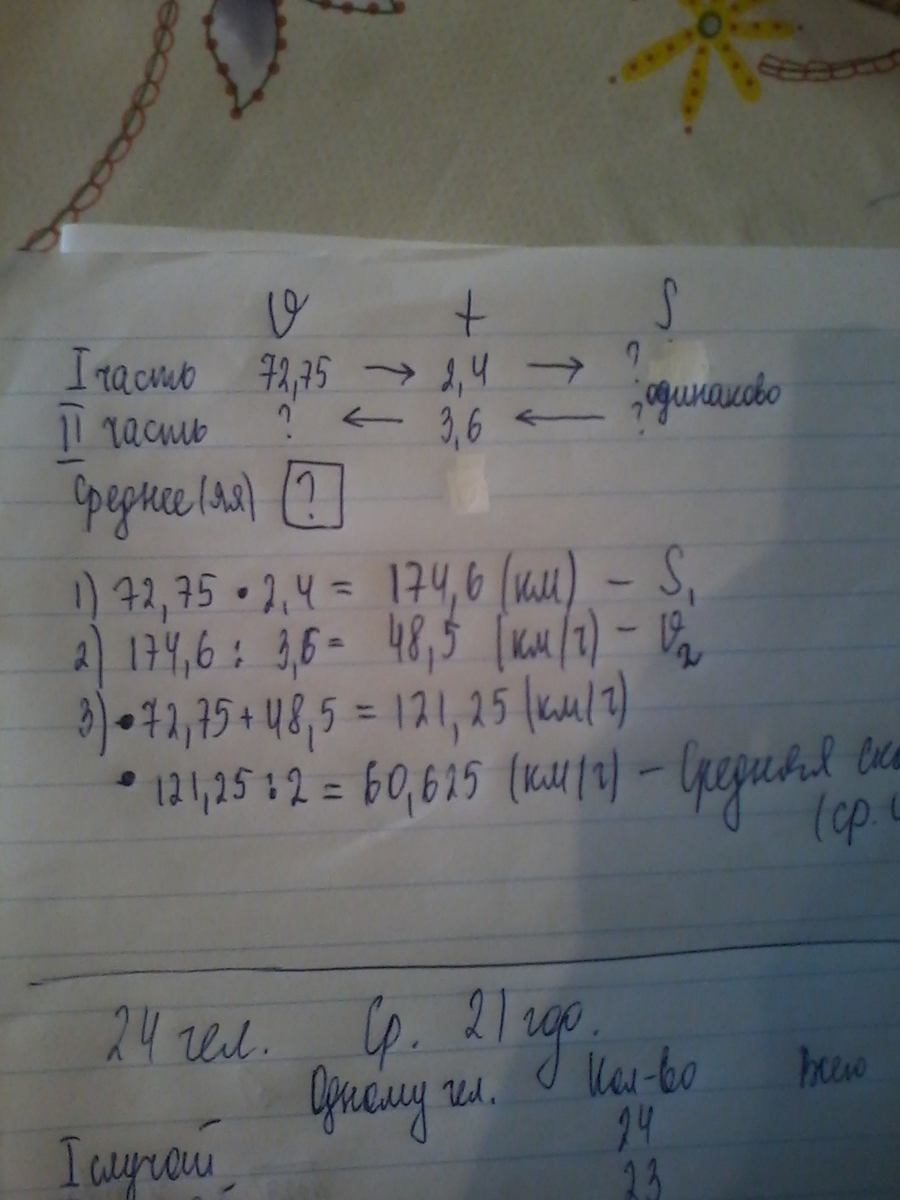 υ t S
I часть 72,75 → 2,4 → ?
одинаково
II часть ? ← 3,6 ← ?
Среднее(яя) ?
1) 72,75 · 2,4 = 174,6 (км) – S₁
2) 174,6 : 3,6 = 48,5 (км/ч) – υ₂
3) • 72,75 + 48,5 = 121,25 (км/ч)
• 121,25 : 2 = 60,625 (км/ч) – Средняя ск
(ср.
24 чел. Ср. 21 годо.
Одному чел. Кол-во Всего
I случай 24
23